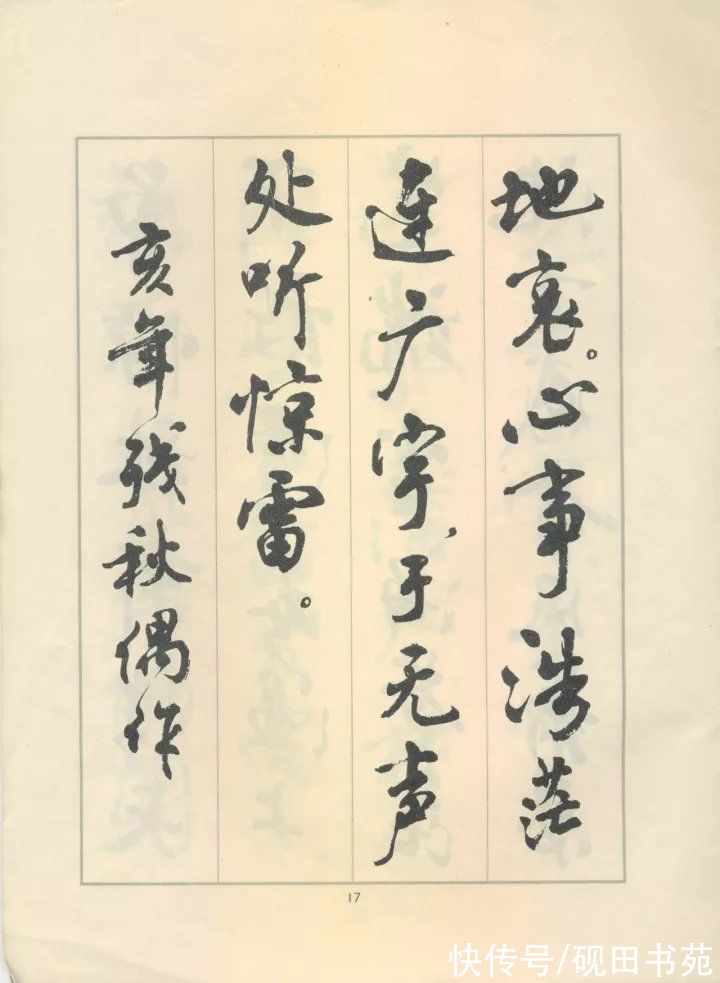 地哀。心事浩茫
连广宇，于无声
处听惊雷。
亥年残秋偶作
17
快传号/砚田书苑